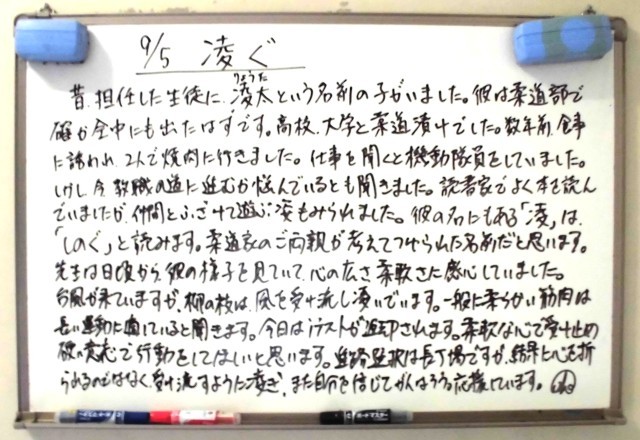 9/5 凌ぐ
りょうた
昔、担任した生徒に、凌太という名前の子がいました。彼は柔道部で
確か全中にも出たはずです。高校、大学と柔道漬けでした。数年前、食事
に誘われ、2人で焼肉に行きました。仕事を聞くと機動隊員をしていました。
しかし今、教職の道に進むか悩んでいるとも聞きました。読書家でよく本を読ん
でいましたが、仲間とふざけて遊ぶ姿もみられました。彼の名にもある「凌」は、
「しのぐ」と読みます。柔道家のご両親が考えてつけられた名前だと思います。
先生は日頃から、彼の様子を見ていて、心の広さ、柔軟さに感心していました。
台風が来ていますが、柳の枝は、風を受け流し凌いでいます。一般に柔らかい筋肉は
長い運動に適していると聞きます。今日は テストが返却されます。柔軟な心で受け止め
次の意志で行動をしてほしいと思います。進路選択は長丁場ですが、結果に心を折
られるのではなく、受け流すように凌ぎ、また自分を信じてがんばろう。応援しています。